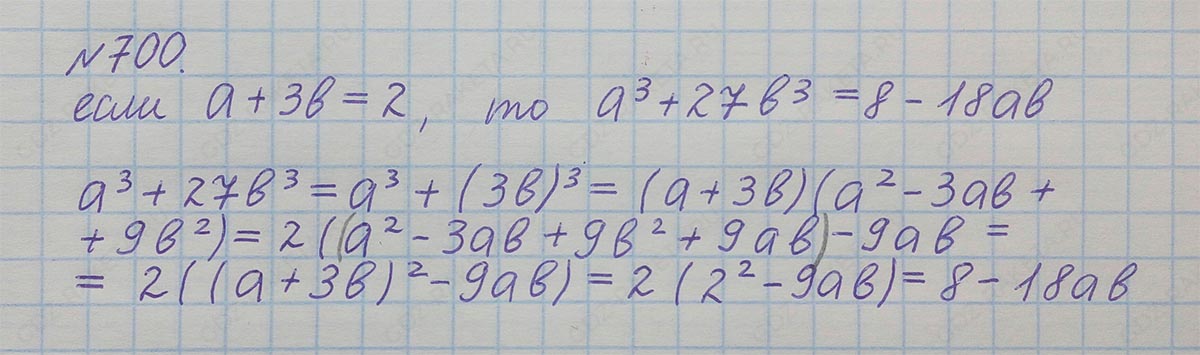 №700.
если a + 3b = 2, то a³ + 27b³ = 8 - 18ab
a³ + 27b³ = a³ + (3b)³ = (a + 3b)(a² - 3ab +
+ 9b²) = 2((a² - 3ab + 9b² + 9ab) - 9ab =
= 2((a + 3b)² - 9ab) = 2(2² - 9ab) = 8 - 18ab